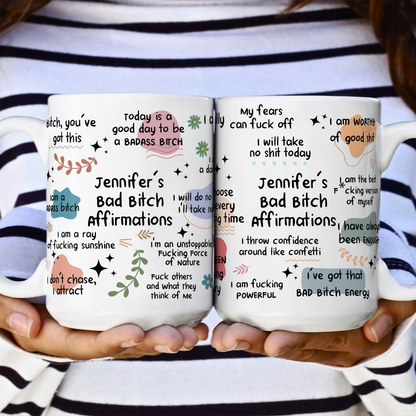 Bitch, you've
got this
Today is a
good day to be
a BADASS BITCH
I am a
badass bitch
Jennifer's
Bad Bitch
Affirmations
I am a ray
of fucking sunshine
I don't chase,
I attract
I'm an unstoppable
Fucking Force
of Nature
Fuck others
and what they
think of me
I will do no
I'll take no
My fears
can fuck off
I will take
no shit today
I am WORTHY
of good shit
I am the best
F*cking version
of myself
Jennifer's
Bad Bitch
Affirmations
I have always
been ENOUGH
I throw confidence
around like confetti
I am fucking
POWERFUL
I've got that
BAD Bitch Energy